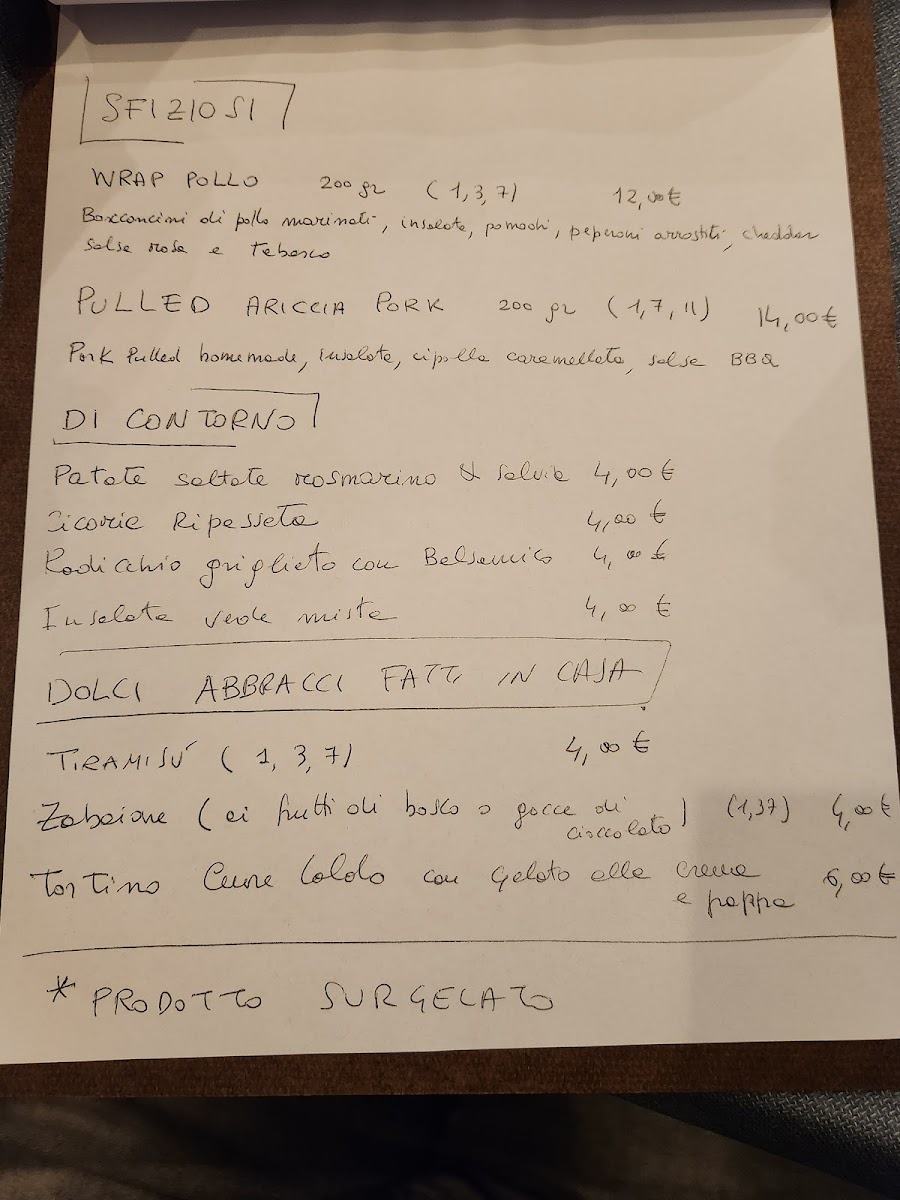 SFIZIOSI
WRAP POLLO 200 gr (1,3,7) 12,00€
Bocconcini di pollo marinati, insalata, pomodi, peperoni arrostiti, cheddar
salsa rosa e Tabasco
PULLED ARICCIA PORK 200 gr (1,7,11) 14,00€
Pork Pulled homemade, insalata, cipolla caramellata, salsa BBQ
DI CONTORNO
Patate saltate rosmarino & salvia 4,00€
Cicoria Ripassata 4,00€
Radicchio grigliato con Balsamico 4,00€
Insalata verde mista 4,00€
DOLCI ABBRACCI FATTI IN CASA
TIRAMISÙ (1,3,7) 4,00€
Zabaione (ai frutti di bosco o gocce di cioccolato) (1,37) 4,00€
Tortino Cuore Caldo con gelato alla crema 6,00€
e pappa
* PRODOTTO SURGELATO